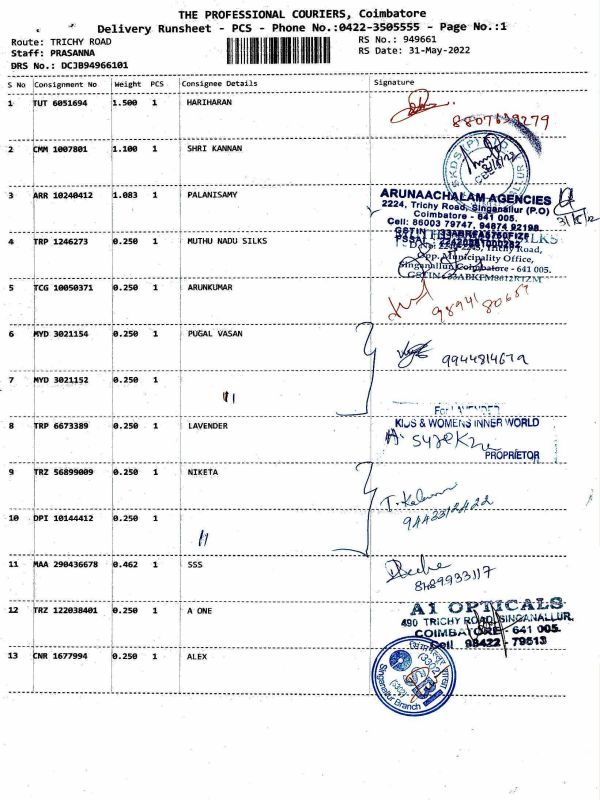 THE PROFESSIONAL COURIERS, Coimbatore
Delivery Runsheet - PCS - Phone No.:0422-3505555 - Page No.:1
Route: TRICHY ROAD
RS No.: 949661
Staff: PRASANNA
RS Date: 31-May-2022
DRS No.: DCJB94966101
S No Consignment No Weight PCS Consignee Details Signature
1 TUT 6051694 1.500 1 HARIHARAN
8807639279
2 CMM 1007801 1.100 1 SHRI KANNAN
3 ARR 10240412 1.083 1 PALANISAMY
ARUNAACHALAM AGENCIES
2224, Trichy Road, Singanallur (P.O)
Coimbatore - 641 005.
Cell: 86003 79747, 94874 92198.
4 TRP 1246273 0.250 1 MUTHU NADU SILKS
Trichy Road,
Opp. Municipality Office,
Singanallur, Coimbatore - 641 005.
5 TCG 10050371 0.250 1 ARUNKUMAR
6 MYD 3021154 0.250 1 PUGAL VASAN
9944814679
7 MYD 3021152 0.250 1 "
8 TRP 6673389 0.250 1 LAVENDER
For LAVENDER
KIDS & WOMENS INNER WORLD
PROPRIETOR
9 TRZ 56899009 0.250 1 NIKETA
9443312422
10 DPI 10144412 0.250 1 "
11 MAA 290436678 0.462 1 SSS
8489933117
12 TRZ 122038401 0.250 1 A ONE
A1 OPTICALS
490 TRICHY ROAD, SINGANALLUR,
COIMBATORE - 641 005.
Cell 98422 - 79513
13 CNR 1677994 0.250 1 ALEX
Singanallur Branch